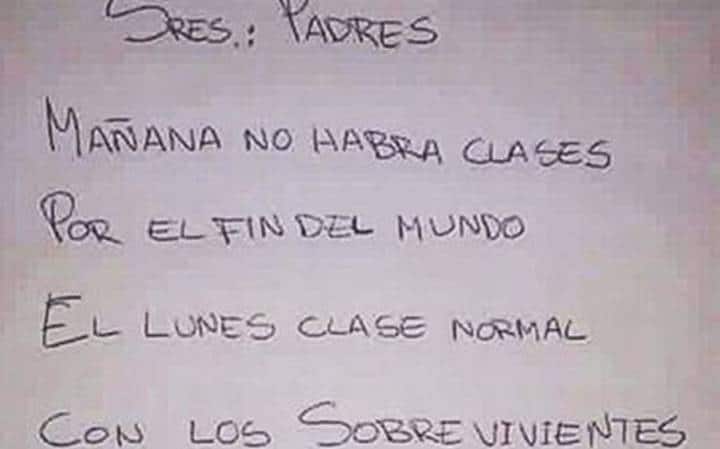 SRES.: PADRES
MAÑANA NO HABRA CLASES
POR EL FIN DEL MUNDO
EL LUNES CLASE NORMAL
CON LOS SOBREVIVIENTES